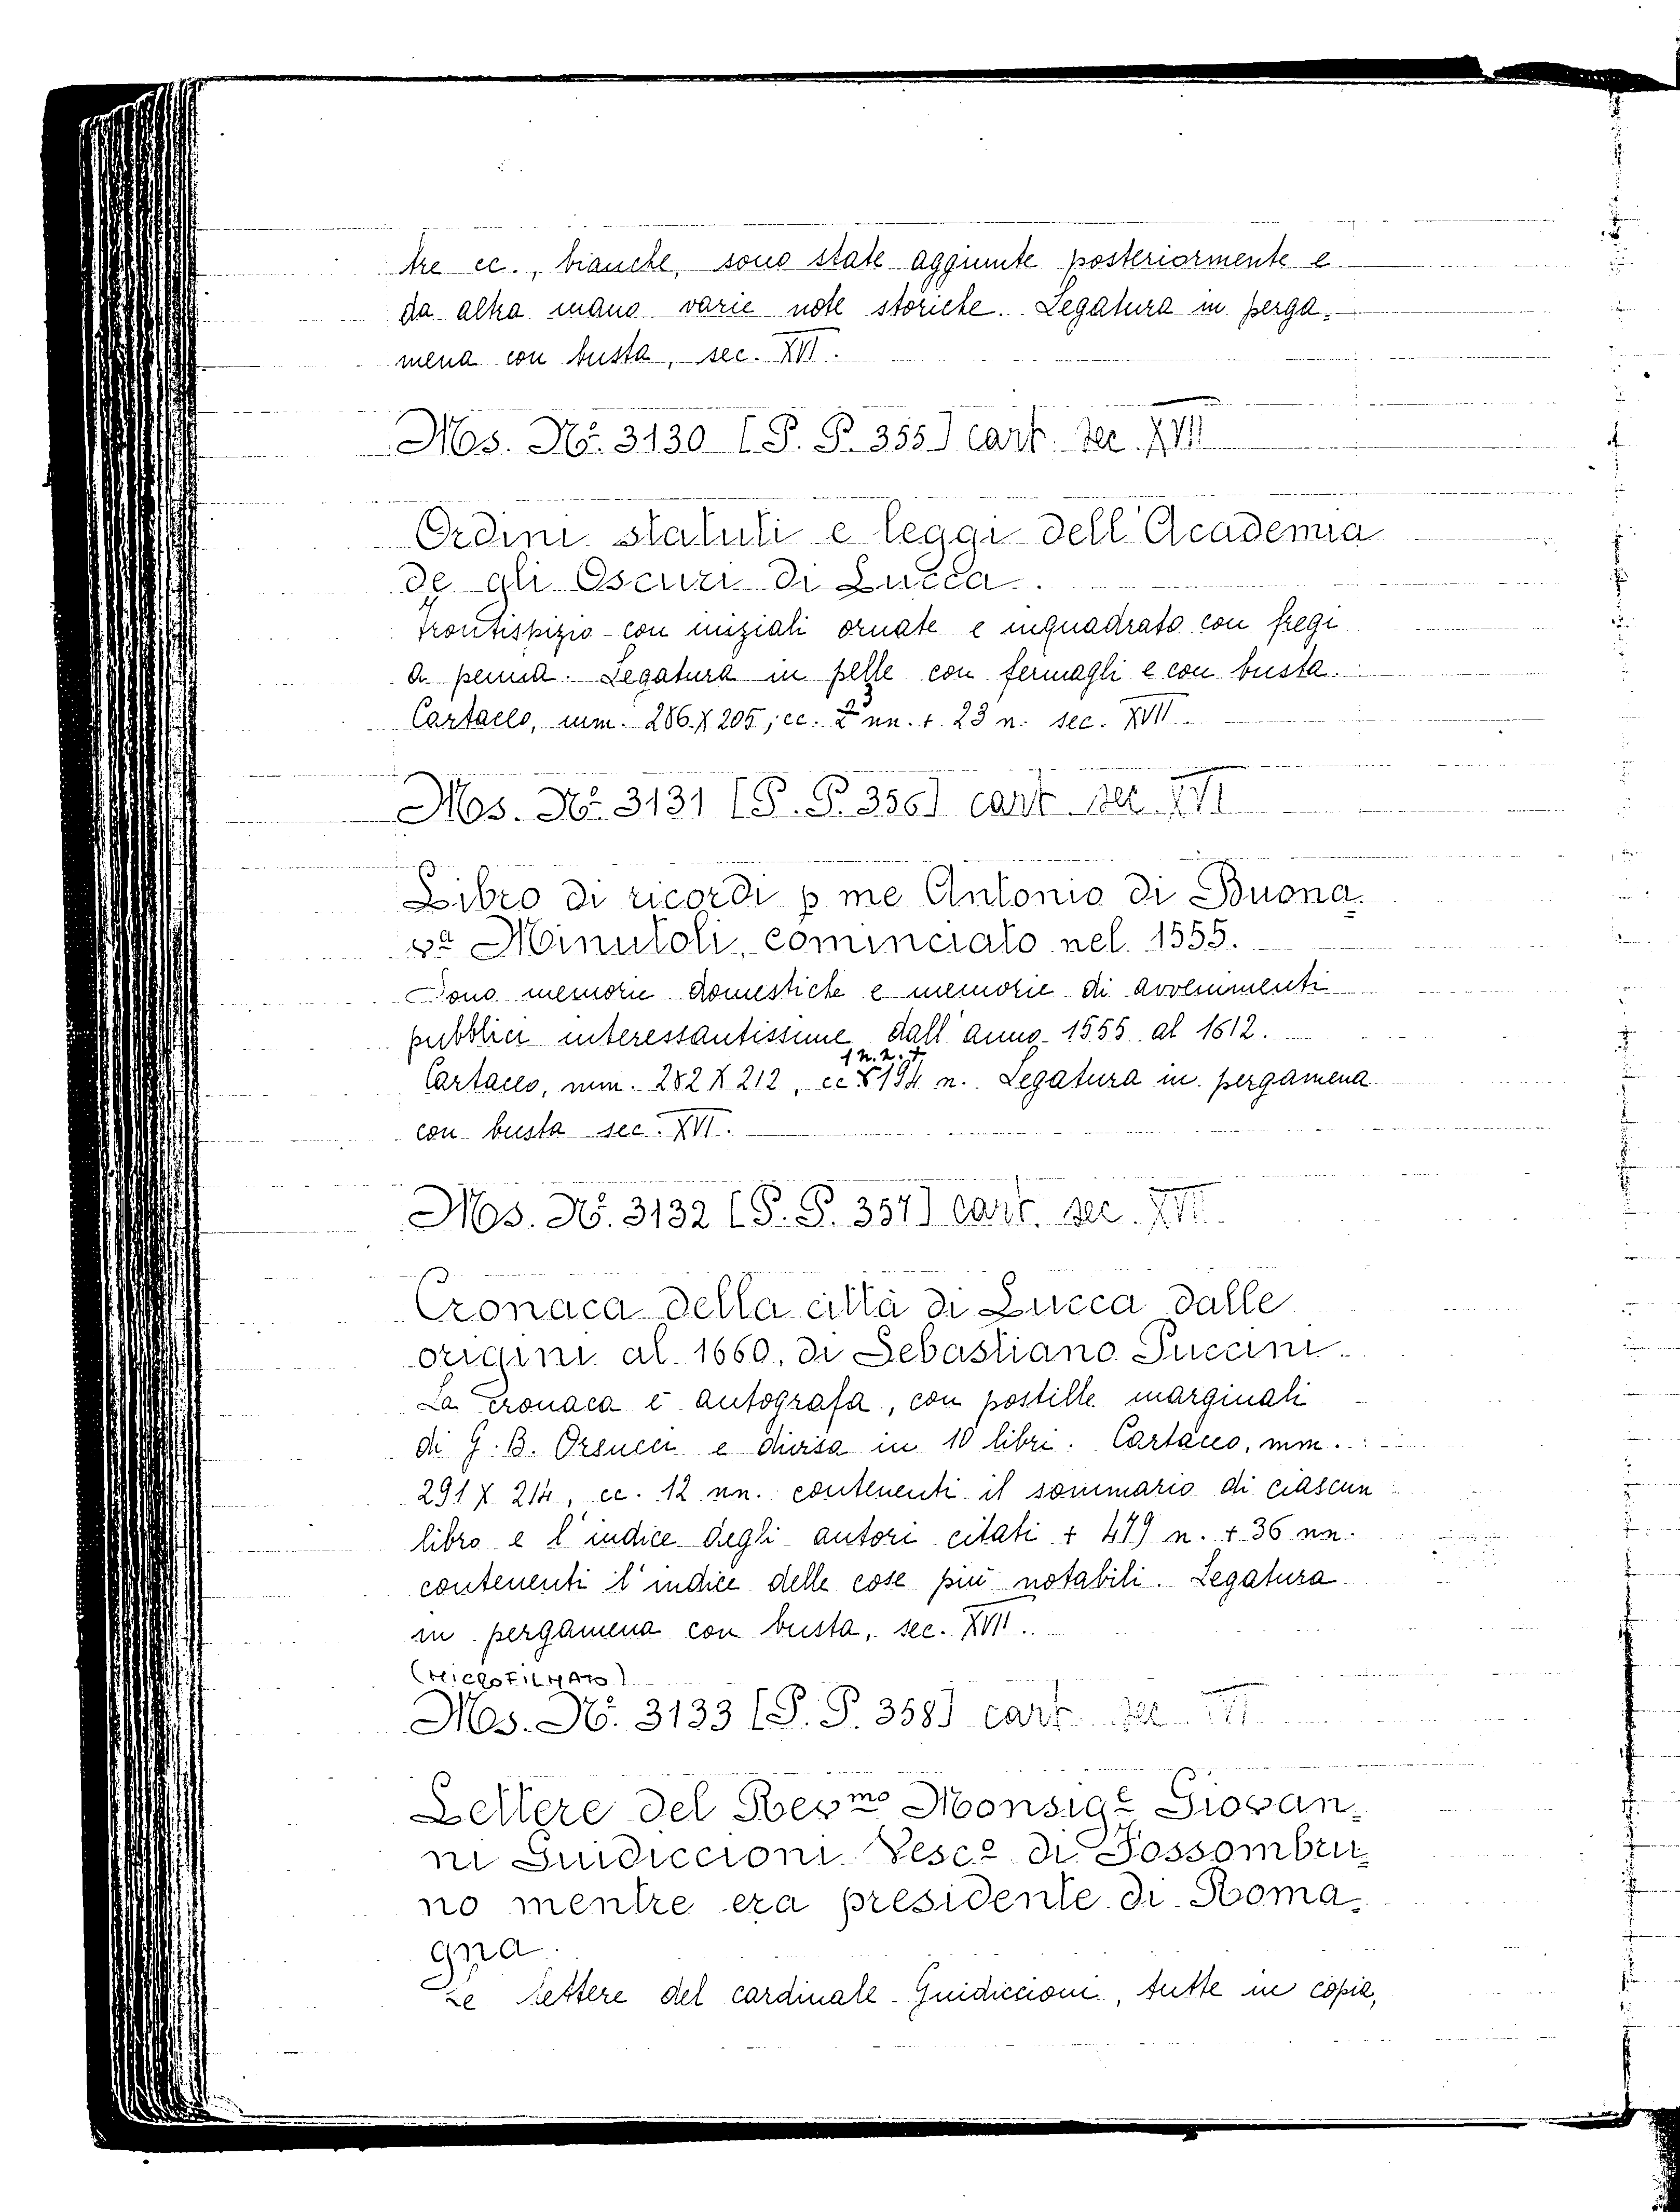 tre cc., bianche, sono state aggiunte posteriormente e
da altra mano varie note storiche. Legatura in perga-
mena con busta, sec. XVI.
Mos. No. 3130 [P. P. 355] cart. sec. XVII
Ordini statuti e leggi dell'Academia
de gli Oscuri di Lucca.
Frontispizio con iniziali ornate e inquadrato con fregi
a penna. Legatura in pelle con fermagli e con busta.
Cartaceo, mm. 286 X 205, cc. 3 nn. + 23 n. sec. XVII.
Mos. No. 3131 [P. P. 356] cart sec. XVI
Libro di ricordi p me Antonio di Buona-
va Minutoli, cominciato nel 1555.
Sono memorie domestiche e memorie di avvenimenti
pubblici interessantissime dall'anno 1555 al 1612.
1 n.n. +
Cartaceo, mm. 282 X 212, cc 194 n. Legatura in pergamena
con busta sec. XVI.
Mos. No. 3132 [P. P. 357] cart. sec. XVII
Cronaca della città di Lucca dalle
origini al 1660, di Sebastiano Puccini.
La cronaca è autografa, con postille marginali
di G. B. Orsucci e divisa in 10 libri. Cartaceo, mm.
291 X 214, cc. 12 nn. contenenti il sommario di ciascun
libro e l'indice degli autori citati + 479 n. + 36 nn.
contenenti l'indice delle cose più notabili. Legatura
in pergamena con busta, sec. XVII.
(MICROFILMATO)
Mos. No. 3133 [P. P. 358] cart. sec. XVI
Lettere del Revmo Monsigre Giovan-
ni Guidiccioni Vesco di Fossombru-
no mentre era presidente di Roma-
gna.
Le lettere del cardinale Guidiccioni, tutte in copia,